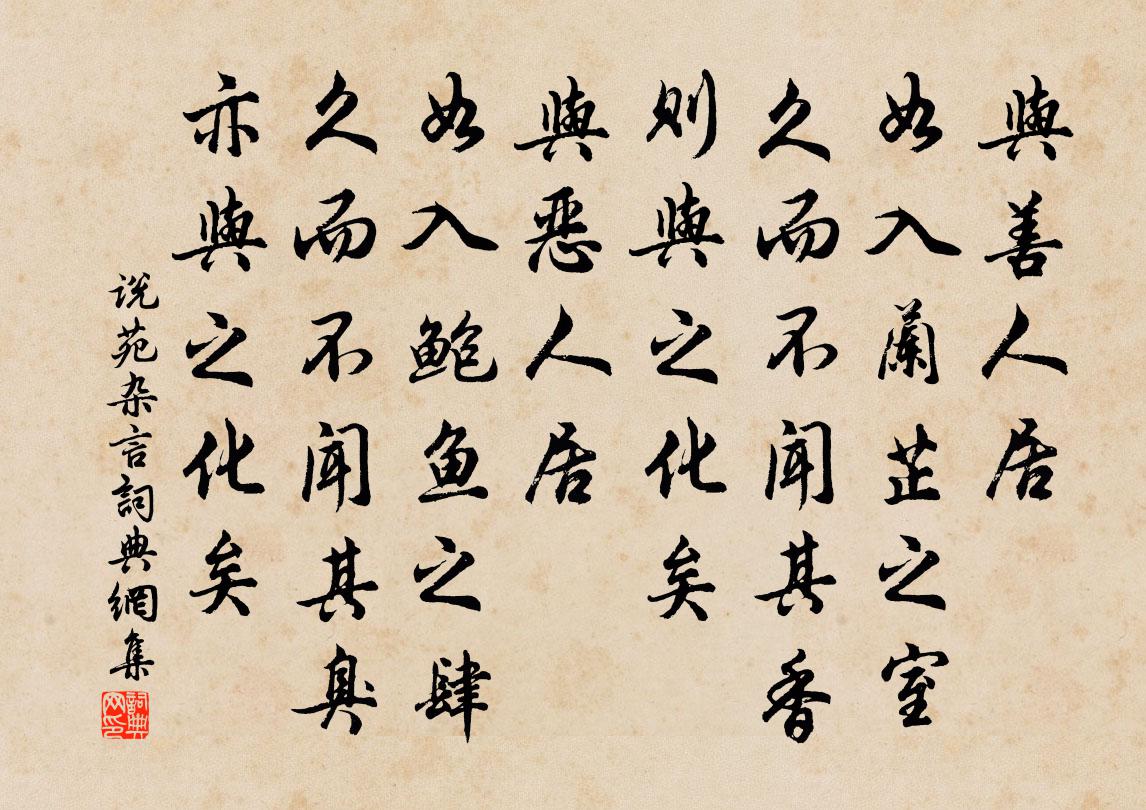 與善人居
如入蘭芷之室
久而不闻其香
则與之化矣
與恶人居
如入鲍鱼之肆
久而不闻其臭
亦與之化矣
说苑杂言詞典網集
詞典
网印